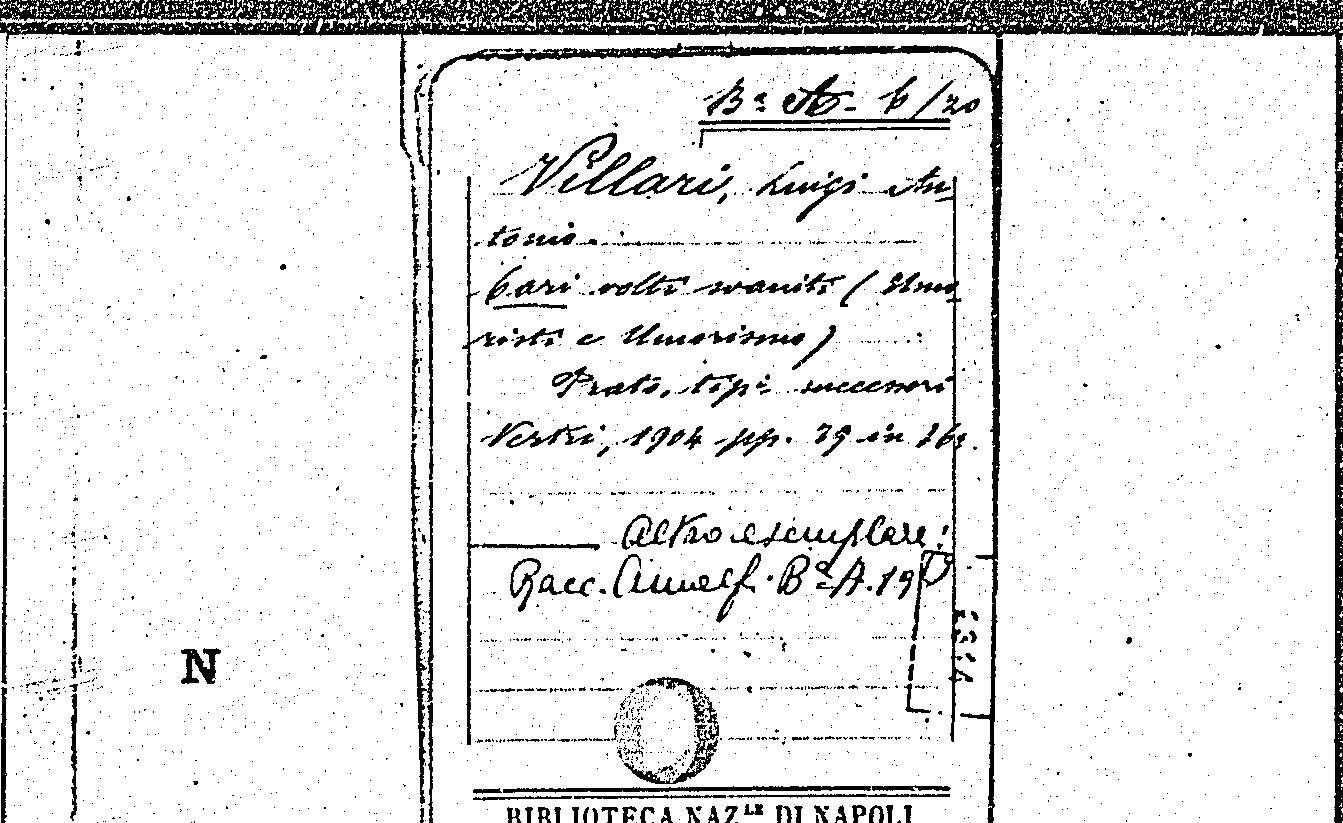 Bª A- 6/20
Villari, Luigi An-
tonio.
Cari volti svaniti (Umo-
risti e Umorismo)
Prato, tip: successori
Vestri, 1904 pp. 29 in 16º.
Altro esemplare:
Racc. Amalf. Bª A. 19
N
BIBLIOTECA NAZLE DI NAPOLI